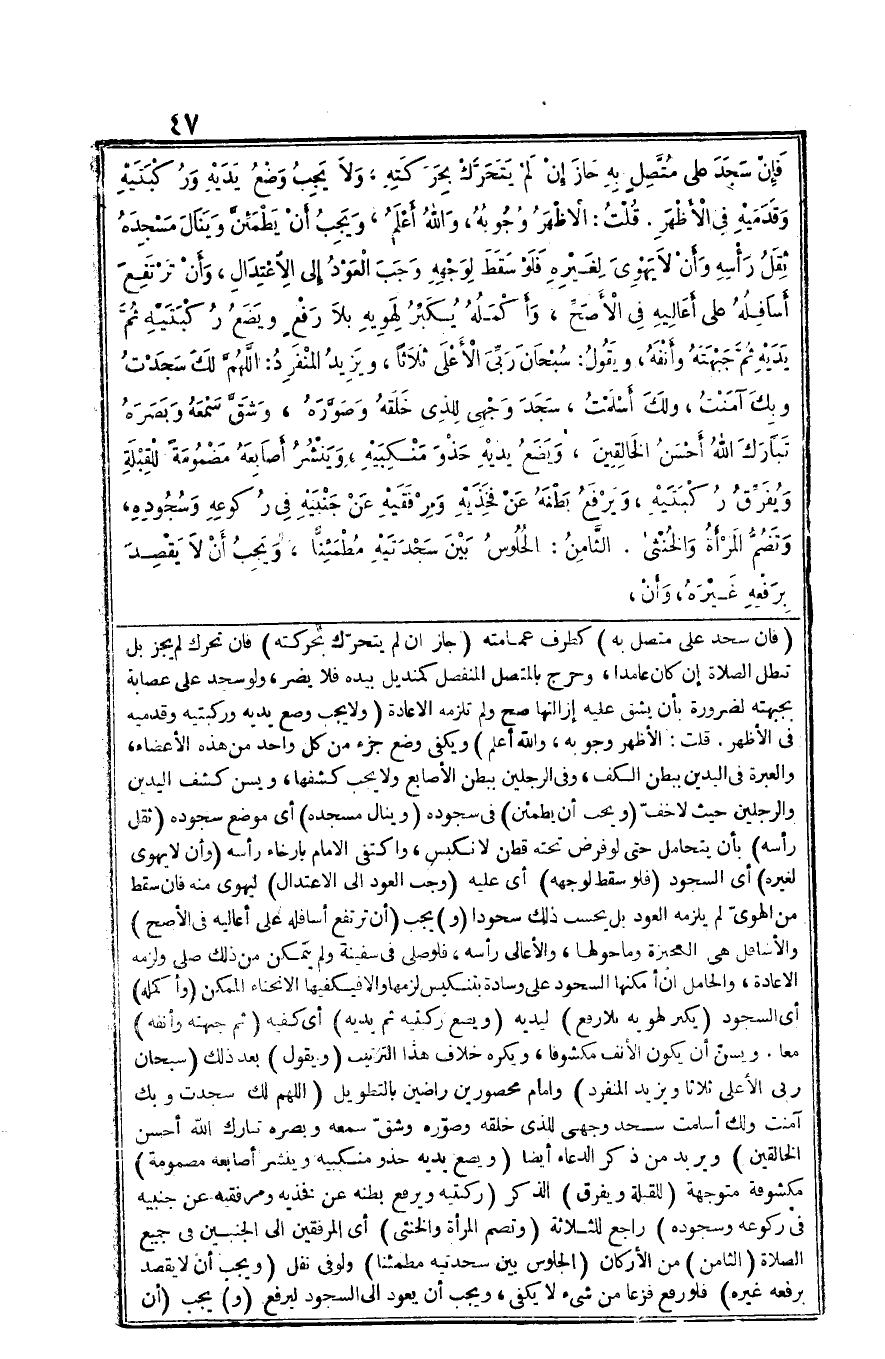 ٤٧
فَإِنْ سَجَدَ عَلَى مُتَّصِلٍ بِهِ جَازَ إِنْ لَمْ يَتَحَرَّكْ بِحَرَكَتِهِ ، وَلَا يَجِبُ وَضْعُ يَدَيْهِ وَرُكْبَتَيْهِ
وَقَدَمَيْهِ فِي الْأَظْهَرِ . قُلْتُ : الْأَظْهَرُ وُجُوبُهُ ، وَاللهُ أَعْلَمُ ، وَيَجِبُ أَنْ يَطْمَئِنَّ وَيَنَالَ مَسْجِدَهُ
ثِقَلُ رَأْسِهِ وَأَنْ لَا يَهْوِىَ لِغَيْرِهِ فَلَوْ سَقَطَ لِوَجْهِهِ وَجَبَ الْعَوْدُ إِلَى الِاعْتِدَالِ ، وَأَنْ تَرْتَفِعَ
أَسَافِلُهُ عَلَى أَعَالِيهِ فِي الْأَصَحِّ ، وَأَكْمَلُهُ يُكَبِّرُ لِهَوِيهِ بِلَا رَفْعٍ وَيَضَعُ رُكْبَتَيْهِ ثُمَّ
يَدَيْهِ ثُمَّ جَبْهَتَهُ وَأَنْفَهُ ، وَيَقُولُ : سُبْحَانَ رَبِّيَ الْأَعْلَى ثَلَاثًا ، وَيَزِيدُ الْمُنْفَرِدُ : اللَّهُمَّ لَكَ سَجَدْتُ
وَبِكَ آمَنْتُ ، وَلَكَ أَسْلَمْتُ ، سَجَدَ وَجْهِى لِلَّذِى خَلَقَهُ وَصَوَّرَهُ ، وَشَقَّ سَمْعَهُ وَبَصَرَهُ
تَبَارَكَ اللهُ أَحْسَنُ الْخَالِقِينَ ، وَيَضَعُ يَدَيْهِ حَذْوَ مَنْكِبَيْهِ ، وَيَنْشُرُ أَصَابِعَهُ مَضْمُومَةً لِلْقِبْلَةِ
وَيُفَرِّقُ رُكْبَتَيْهِ ، وَيَرْفَعُ بَطْنَهُ عَنْ فَخِذَيْهِ وَمِرْفَقَيْهِ عَنْ جَنْبَيْهِ فِي رُكُوعِهِ وَسُجُودِهِ ،
وَتَضُمُّ الْمَرْأَةُ وَالْخُنْثَى . الثَّامِنُ : الْجُلُوسُ بَيْنَ سَجْدَتَيْهِ مُطْمَئِنًّا ، وَيَجِبُ أَنْ لَا يَقْصِدَ
بِرَفْعِهِ غَيْرَهُ ، وَأَنْ ،
( فان سجد على متصل به ) كطرف عمامته ( جاز ان لم يتحرّك بحركته ) فان تحرك لم يجز بل
تبطل الصلاة إن كان عامدا ، وخرج بالمتصل المنفصل كمنديل بيده فلا يضر ، ولو سجد على عصابة
بجبهته لضرورة بأن يشق عليه إزالتها صح ولم تلزمه الاعادة ( ولا يجب وضع يديه وركبتيه وقدميه
فى الأظهر . قلت : الأظهر وجوبه ، والله أعلم ) ويكفى وضع جزء من كل واحد من هذه الأعضاء ،
والعبرة فى اليدين ببطن الكف ، وفى الرجلين ببطن الأصابع ولا يجب كشفها ، ويسن كشف اليدين
والرجلين حيث لا خف ( ويجب أن يطمئن ) فى سجوده ( وينال مسجده ) أى موضع سجوده ( ثقل
رأسه ) بأن يتحامل حتى لو فرض تحته قطن لانكبس ، واكتفى الامام بارخاء رأسه ( وأن لا يهوى
لغيره ) أى السجود ( فلو سقط لوجهه ) أى عليه ( وجب العود الى الاعتدال ) ليهوى منه فان سقط
من الهوىّ لم يلزمه العود بل يحسب ذلك سجودا ( و ) يجب ( أن ترتفع أسافله على أعاليه فى الأصح )
والأسافل هى العجيزة وما حولها ، والأعالى رأسه ، فلو صلى فى سفينة ولم يتمكن من ذلك صلى ولزمه
الاعادة ، والحامل ان أمكنها السجود على وسادة بتنكيس لزمها والا فيكفيها الانحناء الممكن ( وأكمله )
أى السجود ( يكبر لهويه بلا رفع ) ليديه ( ويضع ركبتيه ثم يديه ) أى كفيه ( ثم جبهته وأنفه )
معا . ويسنّ أن يكون الأنف مكشوفا ، ويكره خلاف هذا الترتيب ( ويقول ) بعد ذلك ( سبحان
ربى الأعلى ثلاثا ويزيد المنفرد ) وامام محصورين راضين بالتطويل ( اللهم لك سجدت وبك
آمنت ولك أسلمت سجد وجهى للذى خلقه وصوّره وشقّ سمعه وبصره تبارك الله أحسن
الخالقين ) ويريد من ذكر الدعاء أيضا ( ويضع يديه حذو منكبيه وينشر أصابعه مضمومة )
مكشوفة متوجهة ( للقبلة ويفرق ) الذكر ( ركبتيه ويرفع بطنه عن فخذيه ومرفقيه عن جنبيه
فى ركوعه وسجوده ) راجع للثلاثة ( وتضم المرأة والخنثى ) أى المرفقين الى الجنبين فى جميع
الصلاة ( الثامن ) من الأركان ( الجلوس بين سجدتيه مطمئنا ) ولو فى نفل ( ويجب أن لا يقصد
برفعه غيره ) فلو رفع فزعا من شىء لا يكفى ، ويجب أن يعود الى السجود ليرفع ( و ) يجب ( أن